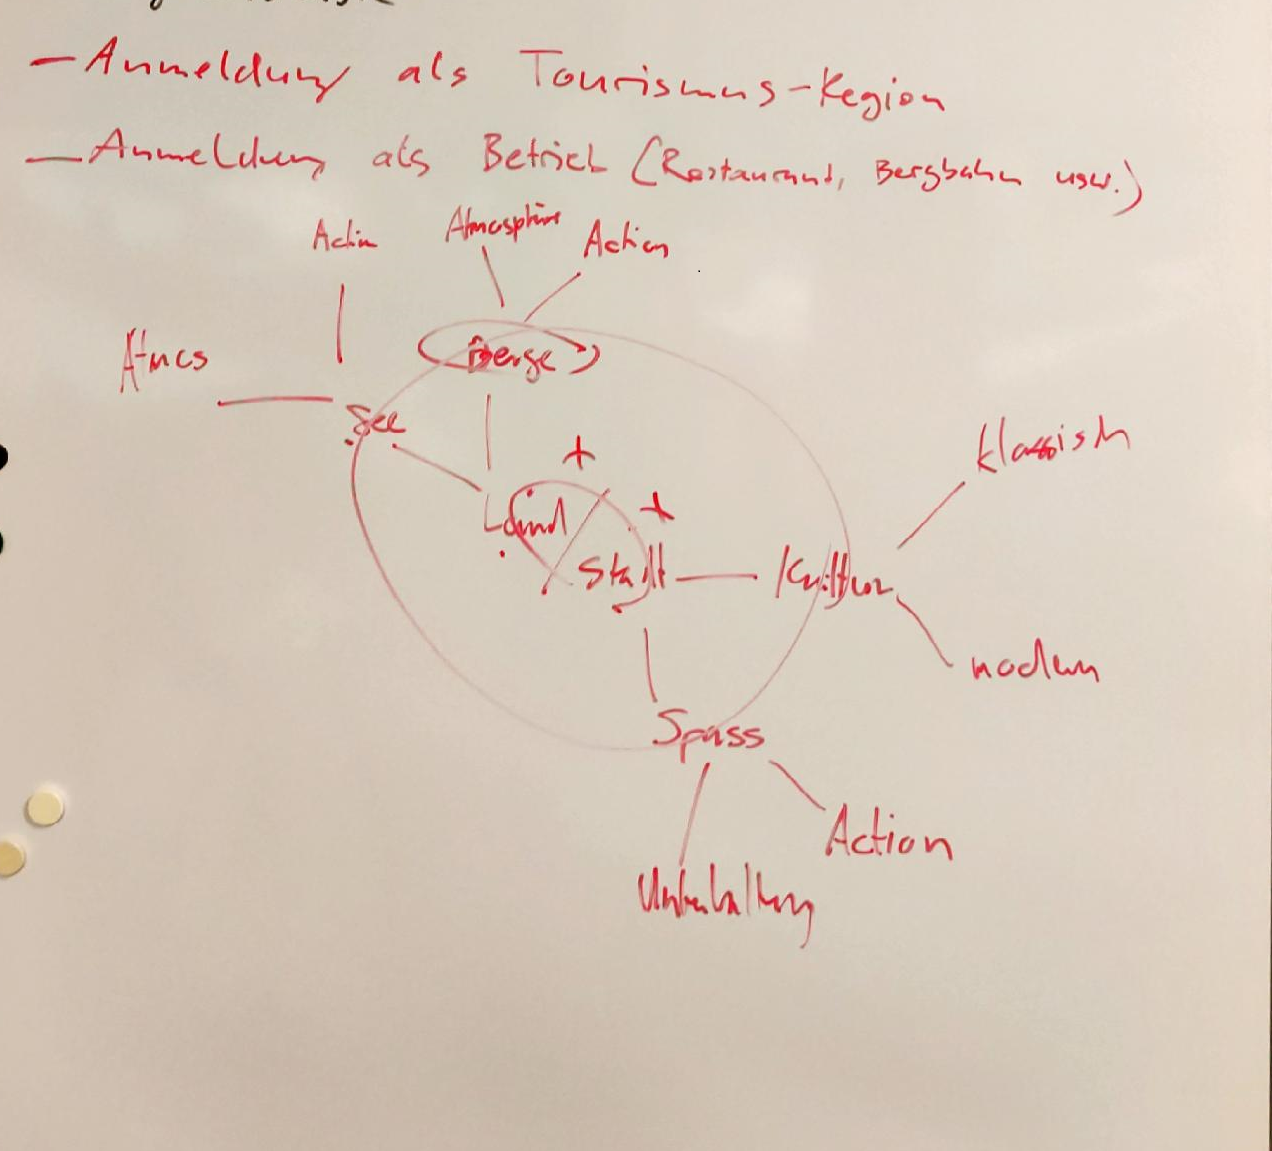 - Anmeldung als Tourismus-Region
- Anmeldung als Betrieb (Restaurant, Bergbahn usw.)
Action Atmosphäre Action
Atmos
Berge
See
klassisch
+
+
Land / Stadt
Kultur
modern
Spass
Action
Unterhaltung